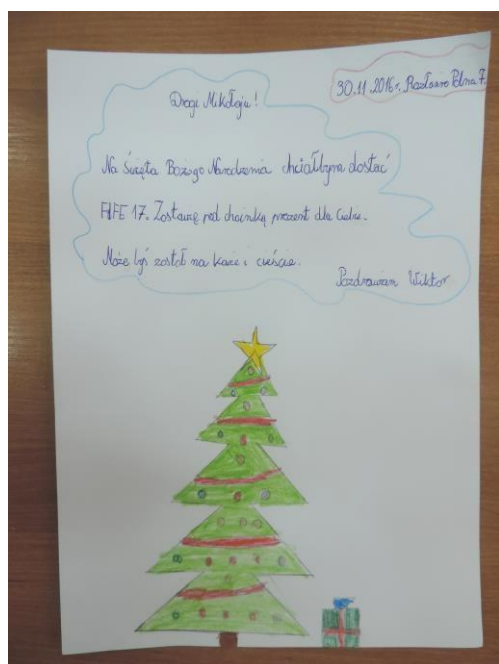 30.11.2016r. Rozłazino Polna 7.
Drogi Mikołaju!
Na Święta Bożego Narodzenia chciałbym dostać
FIFE 17. Zostawię pod choinką prezent dla Ciebie.
Może byś został na kawę i cieście.
Pozdrawiam Wiktor